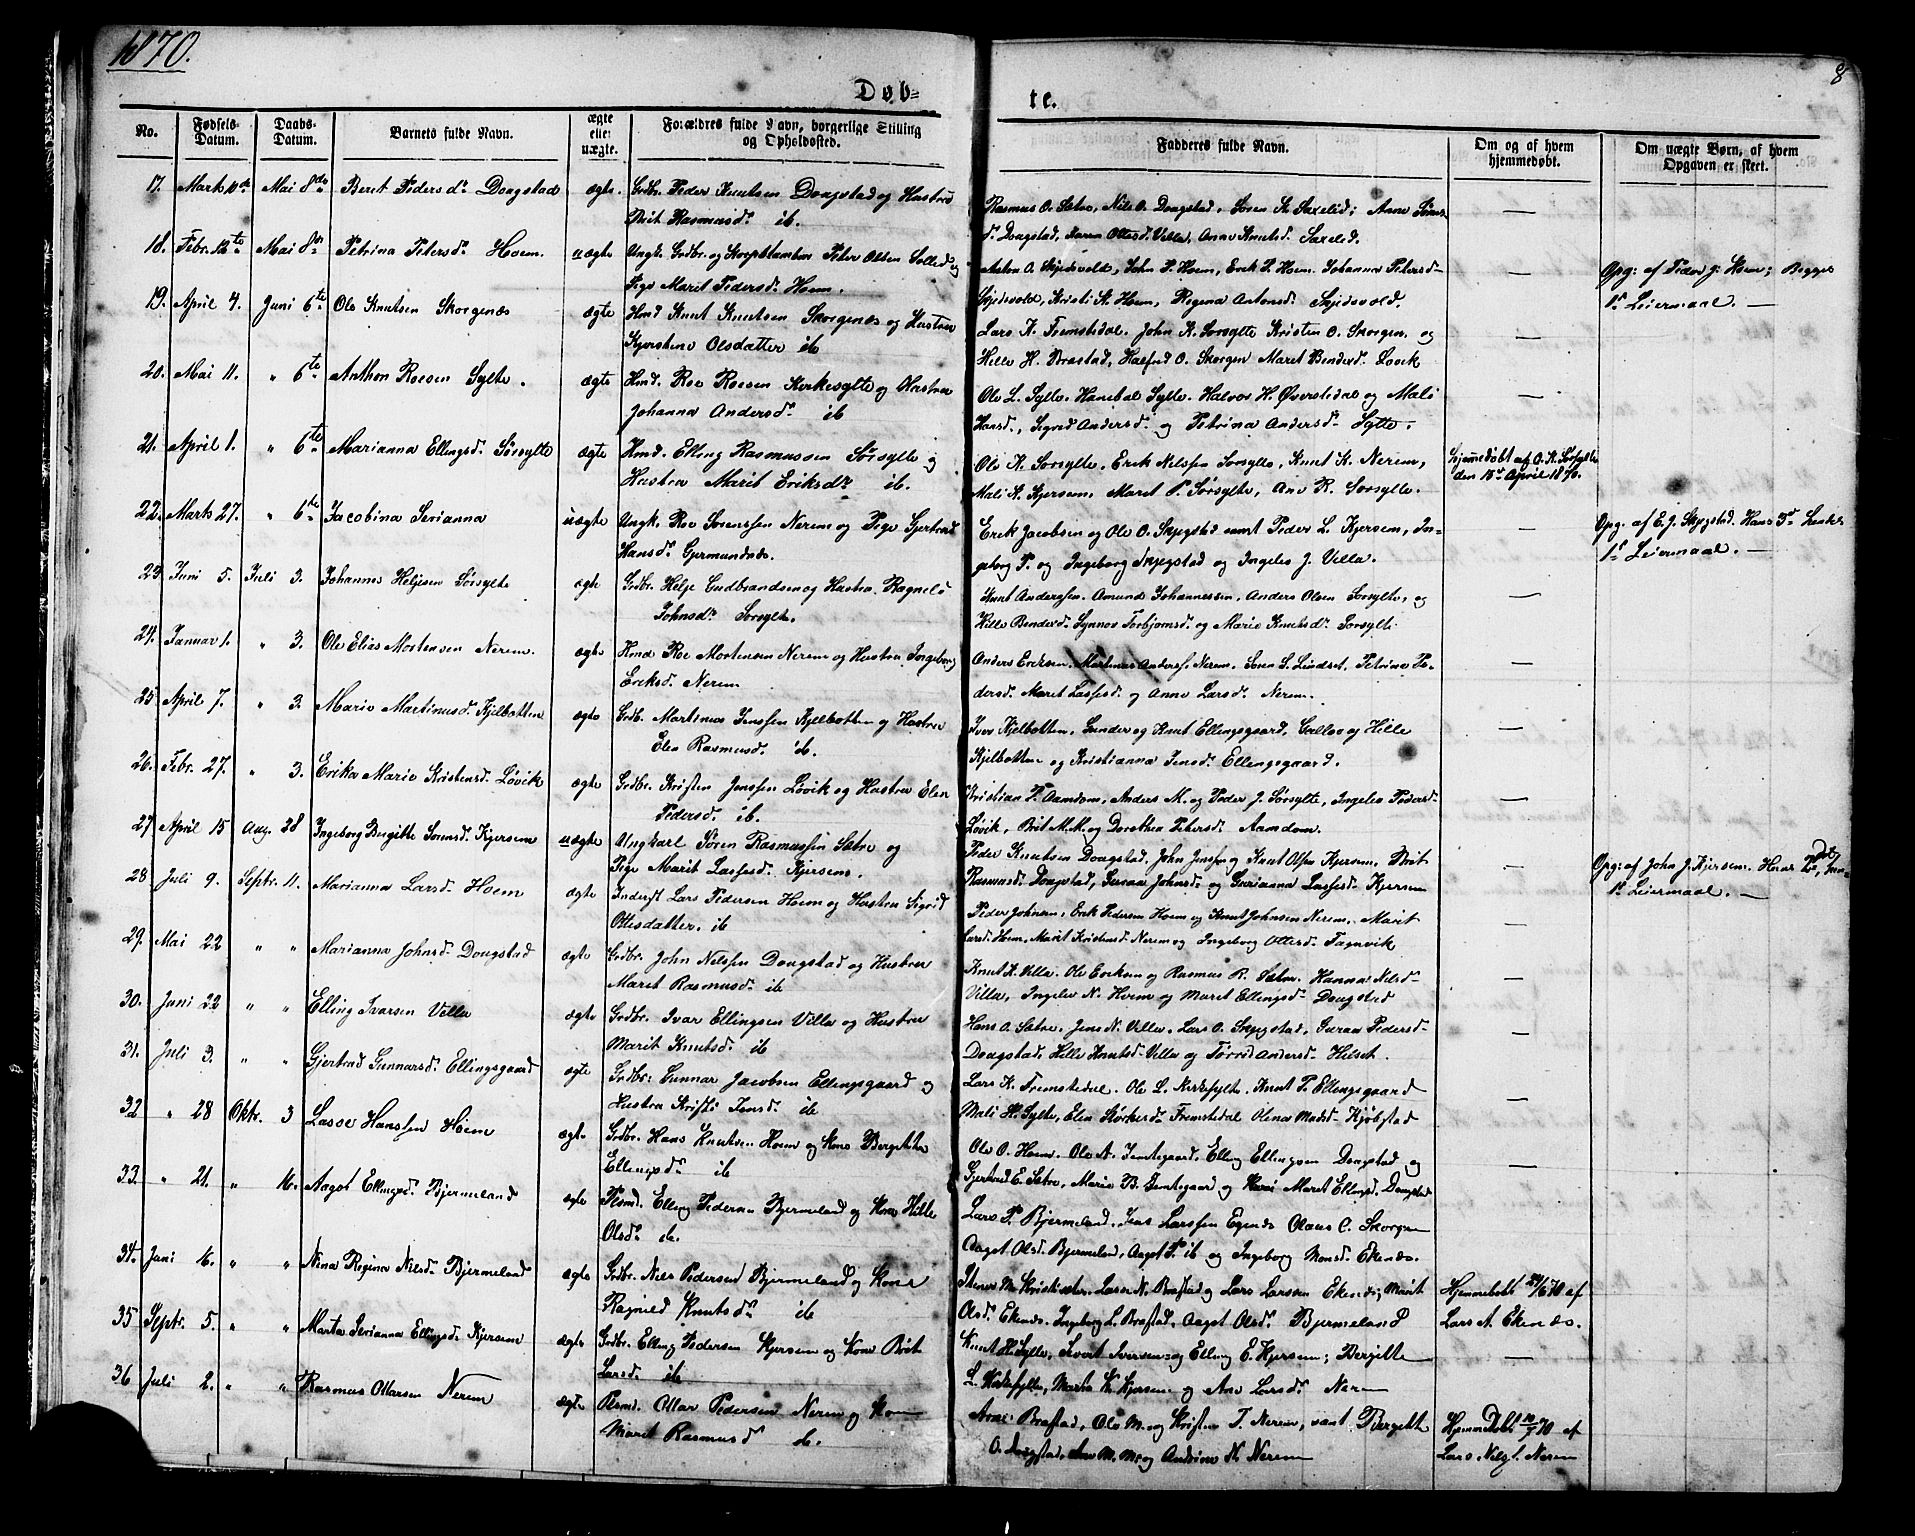 1870.
8
Døb=
te.
No.
Fødsels-
Datum.
Daabs-
Datum.
Barnets fulde Navn.
ægte
eller
uægte.
Forældres fulde Navn, borgerlige Stilling
og Opholdssted.
Fadderes fulde Navn.
Om og af hvem
hjemmedøbt.
Om uægte Børn, af hvem
Opgaven er skeet.
17. Marts Mai 8de Beret Pedersdr. Dougstad ægte. Grdbr. Peder Knutsen Dougstad og Hustru
Brit Rasmusdr. ib.
Rasmus O. Sætre, Nils O. Dougstad, Søren K. Sæxelid; Ane
d. Dougstad, Karen Ottesd. Villa, Ane Knutsd. Sæxelid.
—
18. Febr. 12te Mai 8de Petrina Petersdr. Hoem. uægte Ungk. Grdbr. og Peter Olsen og
Pige Marit Pedersdr. Hoem.
Anton O. Skjedsvold, John P. Hoem, Erik P. Hoem. Johanna Petersd.
Skjedsvold, Kristi K. Hoem, Regina Antonsd. Skjedsvold.
—
Opg: af Peder J. Hoem; Begges
1ste Leiermaal. —
19. April 4. Juni 6te Ole Knutsen Skorgenæs ægte Hmd Knut Knutsen Skorgenæs og Hustru
Kjerstene Olsdatter ib
Lars K. Fremstedal. John K. Sørsylte Kristen O. Skorgen. og
Hille H. Brastad, Halfrid O. Skorgen Maret Bendersd. Løvik
—
20. Mai 11. " 6te Anthon Roesen Sylte. ægte Hmd. Roe Roesen Kirkesylte og Hustru
Johanna Andersdr. ib
Ole L. Sylte. Hanibal Sylte. Halvor H. Øverstedal og Mali
Hansd., Sigrid Andersd. og Petrina Andersd. Sylte.
—
21. April 1. " 6te Marianna Ellingsd. Sørsylte ægte Hmd. Elling Rasmussen Sørsylte og
Hustru Marit Eriksdr ib.
Ole K. Sørsylte. Erik Nilsen Sorsylte, Knut K. Nerem,
Mali K. Kjersem, Maret P. Sørsylte, Ane R. Sorsylte.
Hjemmedøbt af O. K. Sørsylte
den 15de April 1870.
22. Marts 27. " 6te Jacobina Serianna uægte Ungk. Roe Sørenssen Nerem og Pige Gjertrud
Hansd. Gjermundnæs.
Erik Jacobsen og Ole O. Skjegstad samt Peder L. Kjersem, In-
geborg P. og Ingeborg Skjegstad og Ingeleo J. Villa.
—
Opg. af E. J. Skjegstad. Hans 3de
1ste Leiermaal. —
23. Juni 5. Juli 3. Johannes Heljesen Sørsylte ægte Grdbr. Helje Gudbrandsen og Hustru Ragnelo
Johnsdr Sorsylte.
Knut Anderssen. Amund Johannessen, Anders Olsen Sorsylte, og
Hille Bendersd. Synnøv Torbjørnsd. og Marie Knutsdr. Sorsylte.
—
24. Januar 1. " 3. Ole Elias Mortensen Nerem. ægte Hmd Roe Mortensen Nerem og Hustru Ingeborg
Eriksd. Nerem
Anders Eriksen. Martinus Anderss. Nerem. Søren S. Lindset. Petrina Pe-
dersd. Maret Lassesd. og Anne Larsd. Nerem.
—
25 April 7. " 3. Marie Martinusd. Kjelbotten ægte Grdb. Martinus Jenssen Kjelbotten og Hustru
Elen Rasmusd. ib.
Iver Kjelbotten, Gunder og Knut Ellingsgaard, og Hille
Kjelbotten og Kristianna Jensd. Ellingsgaard.
—
26. Febr. 27. " 3. Erika Marie Kristensd. Løvik ægte Grdbr. Kristen Jenssen Løvik og Hustru Elen
Pedersd. ib.
Kristian P. Aamdom, Anders M. og Peder J. Sørsylte, Ingeleo Pedersd.
Løvik, Brit M. M. og Dorothea Petersd. Aamdom.
—
27 April 15 Aug. 28 Ingeborg Birgitte Sørensd. Kjersem uægte Ungkarl Søren Rasmussen Sætre og
Pige Marit Lassesd. Kjersem.
Peder Knutsen Dougstad, John Jenssen og Knut Olsen Kjersem. Brit
Rasmusd. Dougstad, Guraa Johnsd. og Gurianna Lassesd. Kjersem
—
Opg: af John J. Kjersem. Hans
1ste Leiermaal. —
28 Juli 9. Septr. 11. Marianna Larsd. Hoem ægte Inderst Lars Pedersen Hoem og Hustru Sigrid
Ottesdatter. ib
Peder Johnsen, Erik Pedersen Hoem og Knut Johnsen Nerem. Marit
Larsd. Hoem, Marit Kristensd. Nerem og Ingeborg Ottesd. Tagnvik
—
29. Mai 22 " " Marianna Johnsd. Dougstad ægte Grdbr. John Nelssen Dougstad og Hustru
Maret Rasmusd. ib
Knut K. Villa. Ole Eriksen og Rasmus R. Sætre. Hanna Nilsd.
Villa, Ingeleo N. Hoem og Maret Ellingsd. Dougstad
—
30. Juni 22 " " Elling Ivarsen Villa ægte Grdbr. Ivar Ellingsen Villa og Hustru
Marit Knutsd. ib
Hans O. Sætre. Jens N. Villa. Lars O. Skjegstad, Guraa Pedersd.
Dougstad. Hille Knutsd. Villa og Andersd. Helset.
—
31. Juli 3. " " Gjertrud Gunnarsd. Ellingsgaard ægte Grdbr: Gunnar Jacobsen Ellingsgaard og
Hustru Kristi Jensd. ib
Lars K. Fremstedal. Ole L. Kirkesylte. Knut P. Ellingsgaard
Mali H. Sylte, Elen Størkersd. Fremstedal Olena Madsd. Kjøbstad
—
32 " 28 Oktr. 3 Lasse Hanssen Hoem ægte Grdbr. Hans Knutsen Hoem og Kone Bergitte
Ellingsdr. ib
Ole O. Hoem. Ole A. Jemtegaard, Elling Ellingsen Dougstad og
Gjertrud E. Sætre, Marie B. Jemtegaard og Maret Ellingsd. Dougstad
—
33. " 21. " 16. Aagot Ellingsd. Bjermeland ægte Plsmd. Elling Pedersen Bjermeland og Kone Hille
Olsdr. ib.
Lars P. Bjermeland. Jens Larssen Ekenæs Olaus C. Skorgen
Aagot Olsd. Bjermeland, Aagot P. ib og Ingeborg Monsd. Ekenæs.
34. Juni 16. " " Nina Regina Nilsd. Bjermeland ægte Grdbr. Nils Pedersen Bjermeland og Kone
Ragnild Knutsdr. ib
M. Kristiansen. Lars N. Brastad og Lars Larsen Ekenæs; Marit
Olsd. Ekenæs. Ingeborg L. Brastad, Aagot Olsd. Bjermeland
Hjemmedøbt 29/6 70 af
Lars A. Ekenæs.
35 Septr. 5. " " Marta Serianna Ellingsd. Kjersem ægte Grdbr. Elling Pedersen Kjersem og Kone Brit
Larsd. ib
Knut H. Sylte, Sivert Iversen og Elling E. Kjersem; Bergitte
L. Kirkesylte, Marta K. Kjersem. og Ane Larsdr. Nerem
—
36 Juli 2. " " Rasmus Ollarsen Nerem ægte Plsmd. Ollar Pedersen Nerem og Kone
Marit Rasmusd ib.
Arne Brastad, Ole M. og Kristen T. Nerem, samt Bergitte
O. Dougstad, Ane M. M. og Andrine N. Nerem
Hjemmedøbt 10/7 70 af
Lars Nils. Nerem